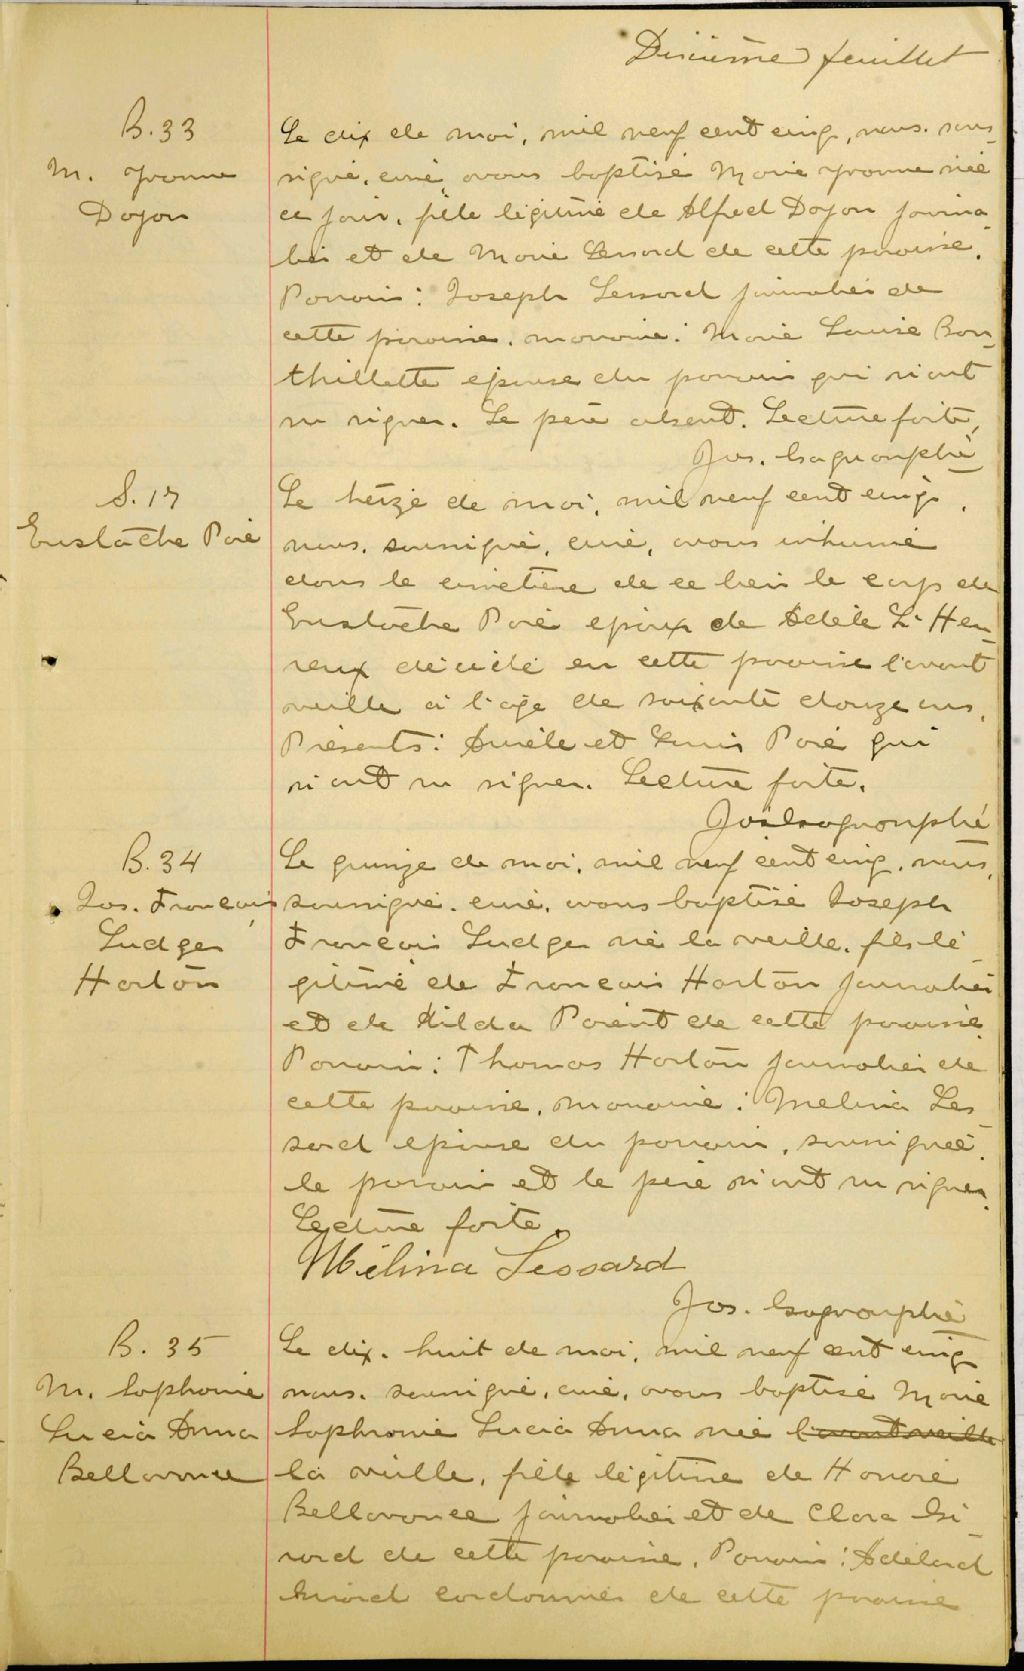 Dixième feuillet
B. 33
M. Yvonne
Doyon
Le dix de mai, mil neuf cent cinq, nous, sous-
signé, curé, avons baptisé Marie Yvonne née
ce jour, fille légitime de Alfred Doyon journa
lier et de Marie Lessard de cette paroisse.
Parrain: Joseph Lessard journalier de
cette paroisse, marraine: Marie Louise Bou-
thillette épouse du parrain qui n'ont
su signer. Le père absent. Lecture faite,
Jos.
S. 17
Eustache Poiré
Le treize de mai, mil neuf cent cinq,
nous, soussigné, curé, avons inhumé
dans le cimetière de ce lieu le corps de
Eustache Poiré époux de Adèle L'Heu-
reux décédé en cette paroisse l'avant
veille à l'âge de soixante douze ans.
Présents: Aurèle et Louis Poiré qui
n'ont su signer. Lecture faite.
Jos
B. 34
Jos. François
Ludger
Horton
Le quinze de mai, mil neuf cent cinq, nous,
soussigné, curé, avons baptisé Joseph
François Ludger né la veille, fils lé-
gitime de François Horton journalier
et de Hilda Parent de cette paroisse.
Parrain: Thomas Horton journalier de
cette paroisse, marraine: Melina Les
sard épouse du parrain, soussignée,
le parrain et le père n'ont su signer.
Lecture faite.
Mélina Lessard
Jos.
B. 35
M. Sophronie
Lucia Anna
Bellavance
Le dix-huit de mai, mil neuf cent cinq
nous, soussigné, curé, avons baptisé Marie
Sophronie Lucia Anna née l'avant veille
la veille, fille légitime de Honoré
Bellavance journalier et de Clara Gi-
rard de cette paroisse. Parrain: Adélard
Girard cordonnier de cette paroisse